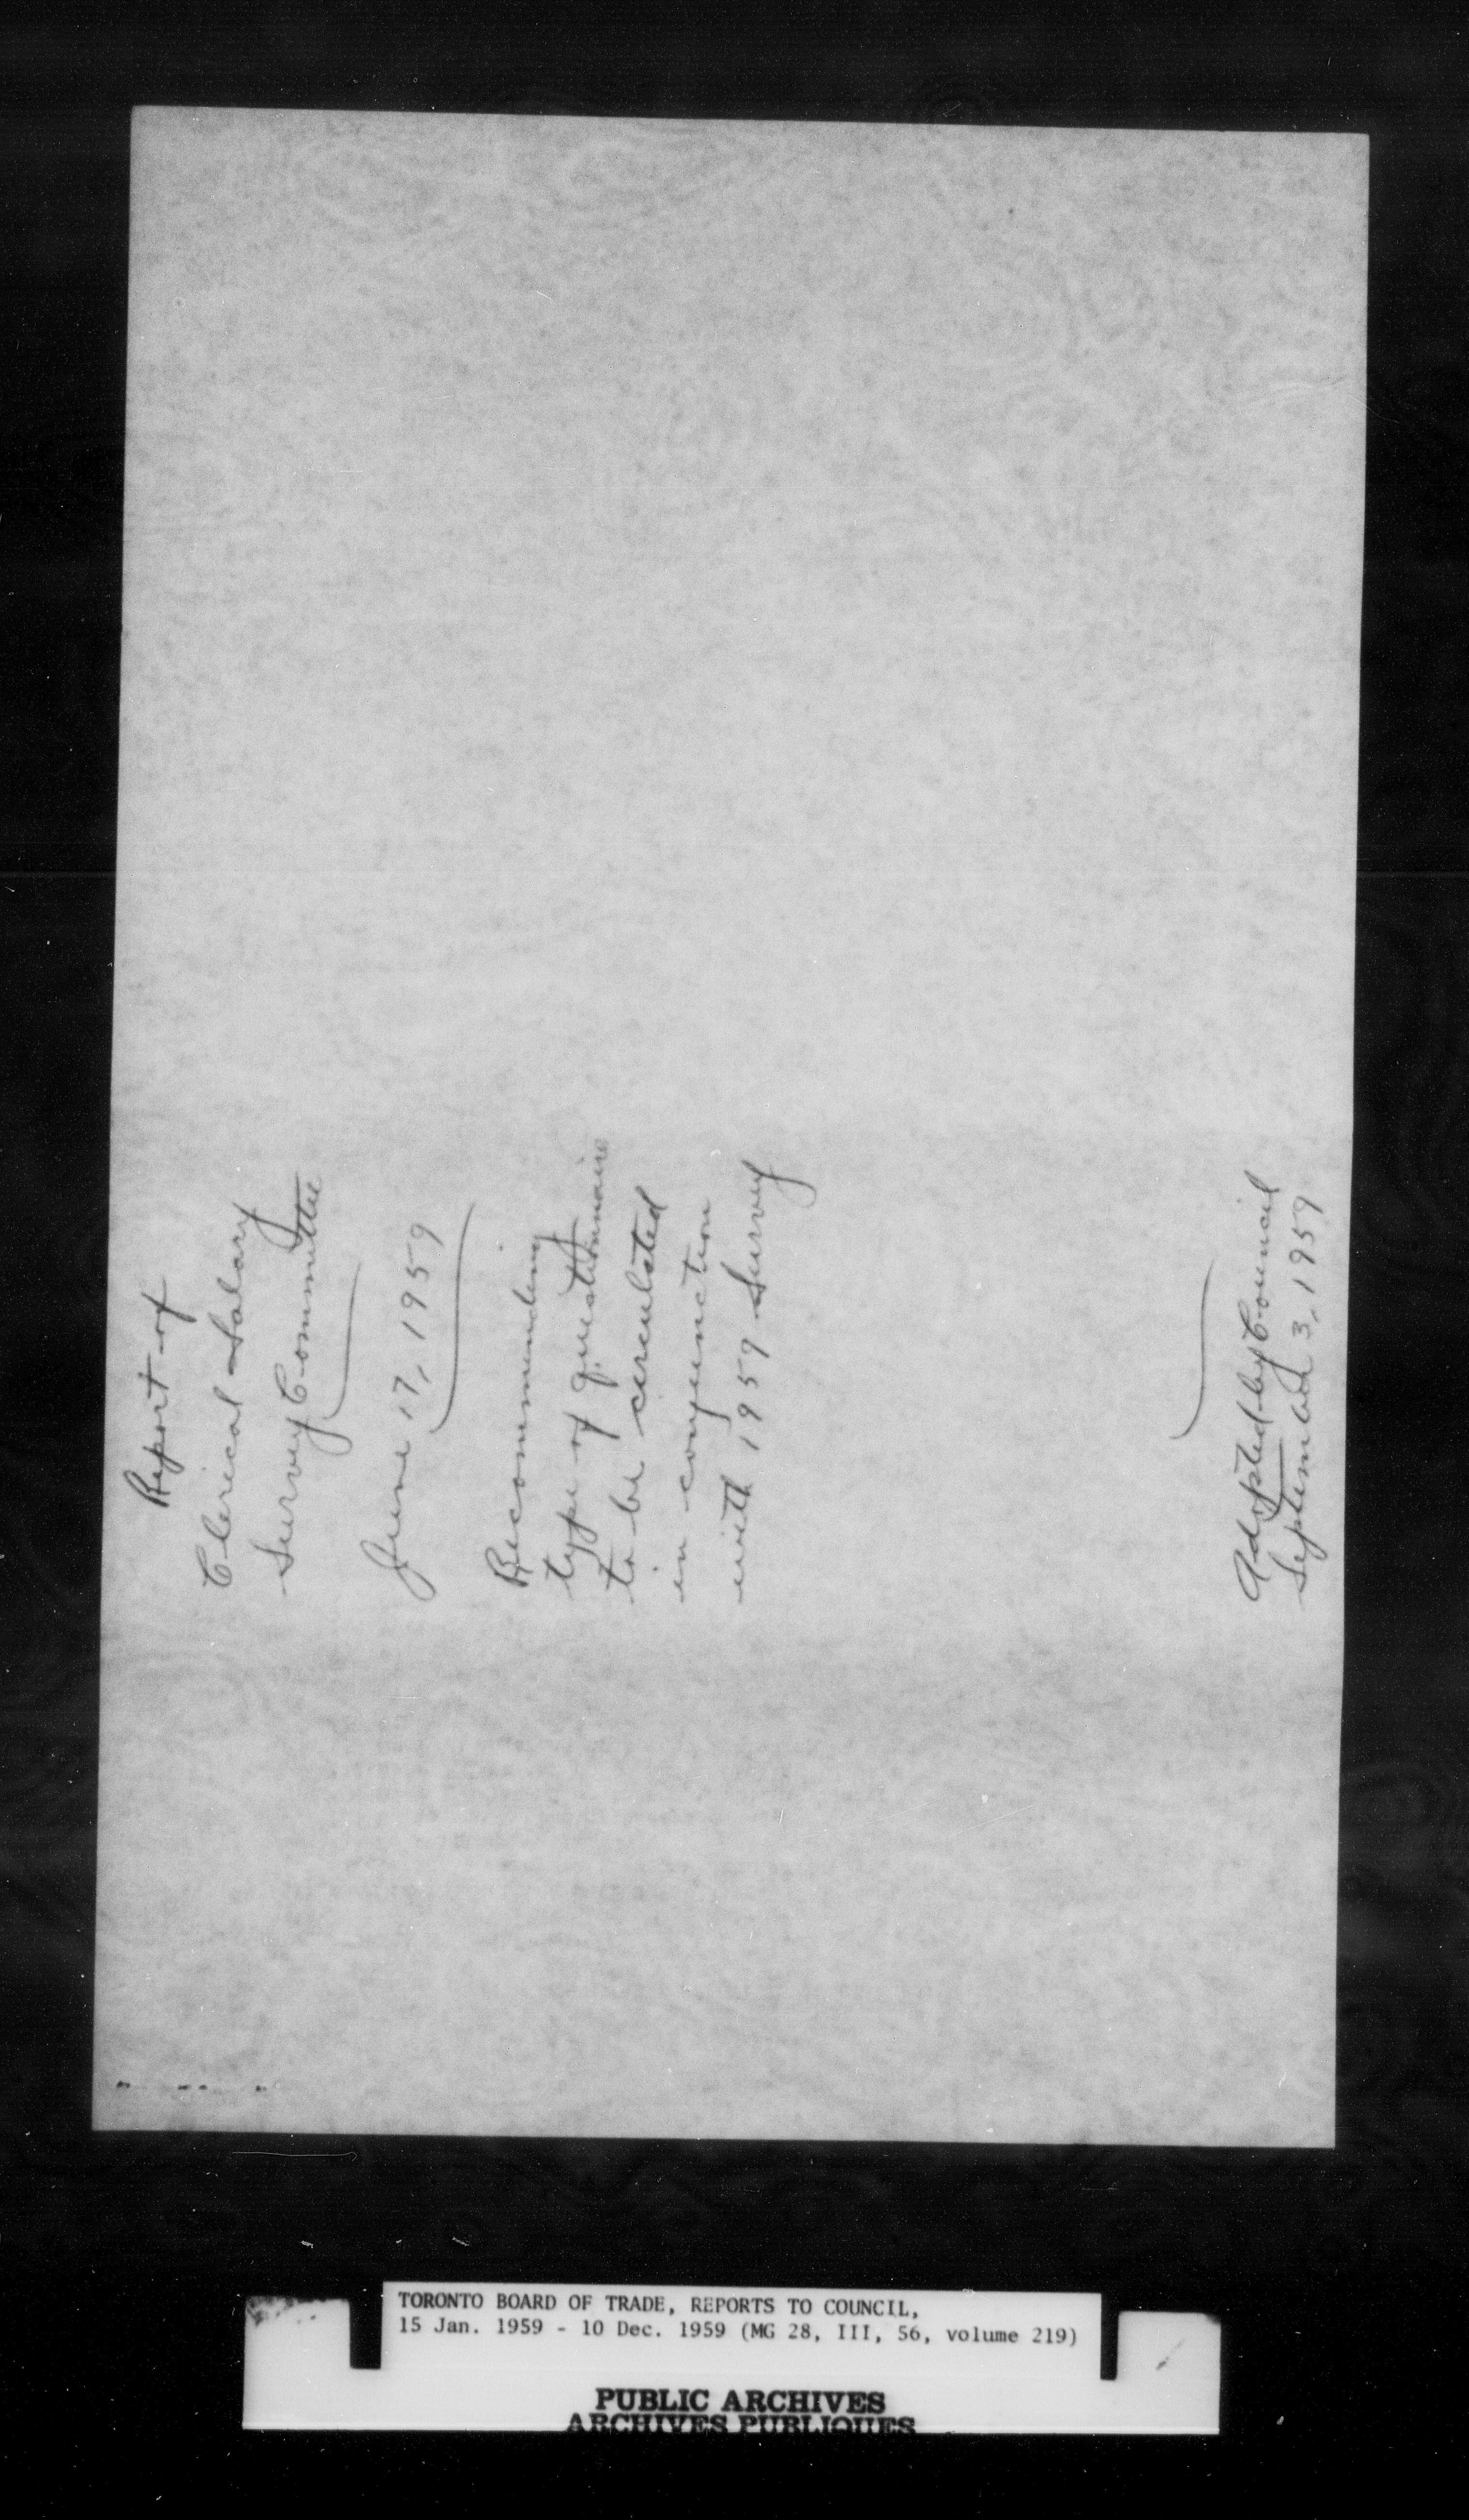 Report of
Clerical Salary
Survey Committee
June 17, 1959
Recommending
type of questionnaire
to be circulated
in conjunction
with 1959 Survey
Adopted by Council
September 3, 1959
TORONTO BOARD OF TRADE, REPORTS TO COUNCIL,
15 Jan. 1959 - 10 Dec. 1959 (MG 28, III, 56, volume 219)
PUBLIC ARCHIVES
ARCHIVES PUBLIQUES